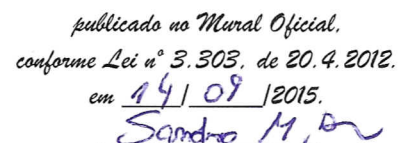 publicado no Mural Oficial,
conforme Lei nº 3.303, de 20.4.2012.
em 14/09/2015.
Sandra M,